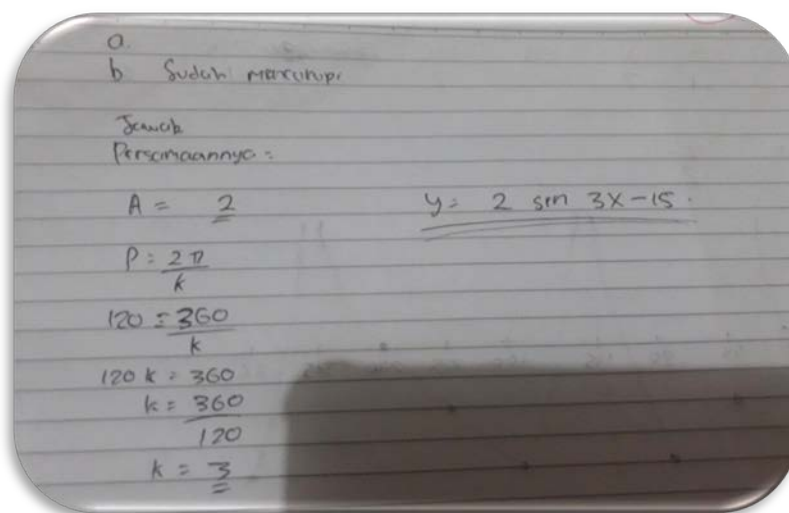 a.
b Sudah mencukupi
Jawab
Persamaannya =
A = 2
y = 2 sin 3x - 15.
P = 2π
k
120 = 360
k
120 k = 360
k = 360
120
k = 3